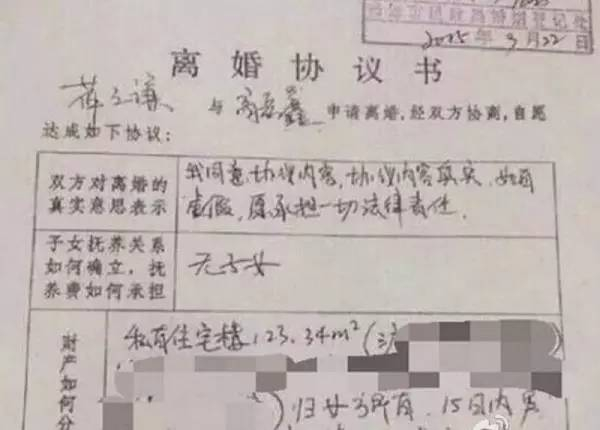 2015年9月22日
离婚协议书
薛之谦与高磊鑫申请离婚,经双方协商,自愿
达成如下协议:
双方对离婚的
真实意思表示
我同意协议内容,协议内容真实,如有
虚假,愿承担一切法律责任.
子女抚养关系
如何确立,抚
养费如何承担
无子女
财产如何分
私有住宅楼123.34m²(沪
归女方所有.15日内男